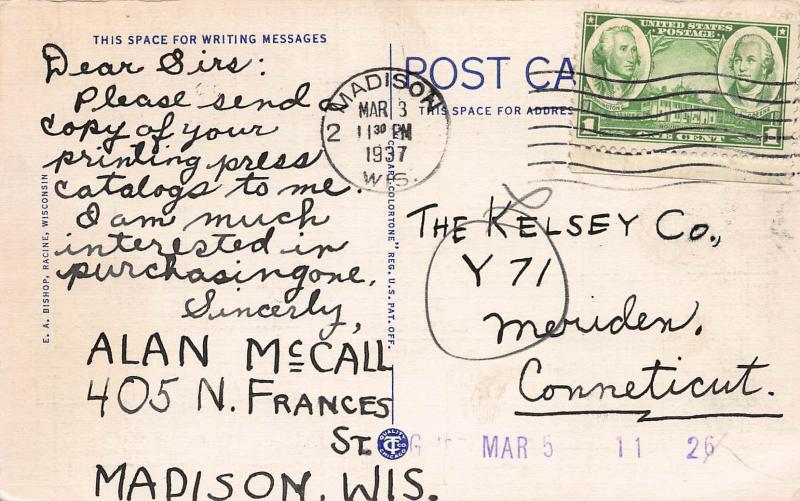 THIS SPACE FOR WRITING MESSAGES
Dear Sirs:
Please send a
copy of your
printing press
catalogs to me.
I am much
interested in
purchasing one.
Sincerly,
ALAN McCALL
405 N. FRANCES
ST.
MADISON, WIS.
E. A. BISHOP, RACINE, WISCONSIN
REG. U.S. PAT. OFF.
MADISON
MAR 3
2 11 30 PM
1937
WIS.
POST CA
THIS SPACE FOR ADDRESS
UNITED STATES
POSTAGE
1 ONE CENT 1
THE KELSEY CO.,
Y 71
Meriden.
Conneticut.
MAR 5 11 26